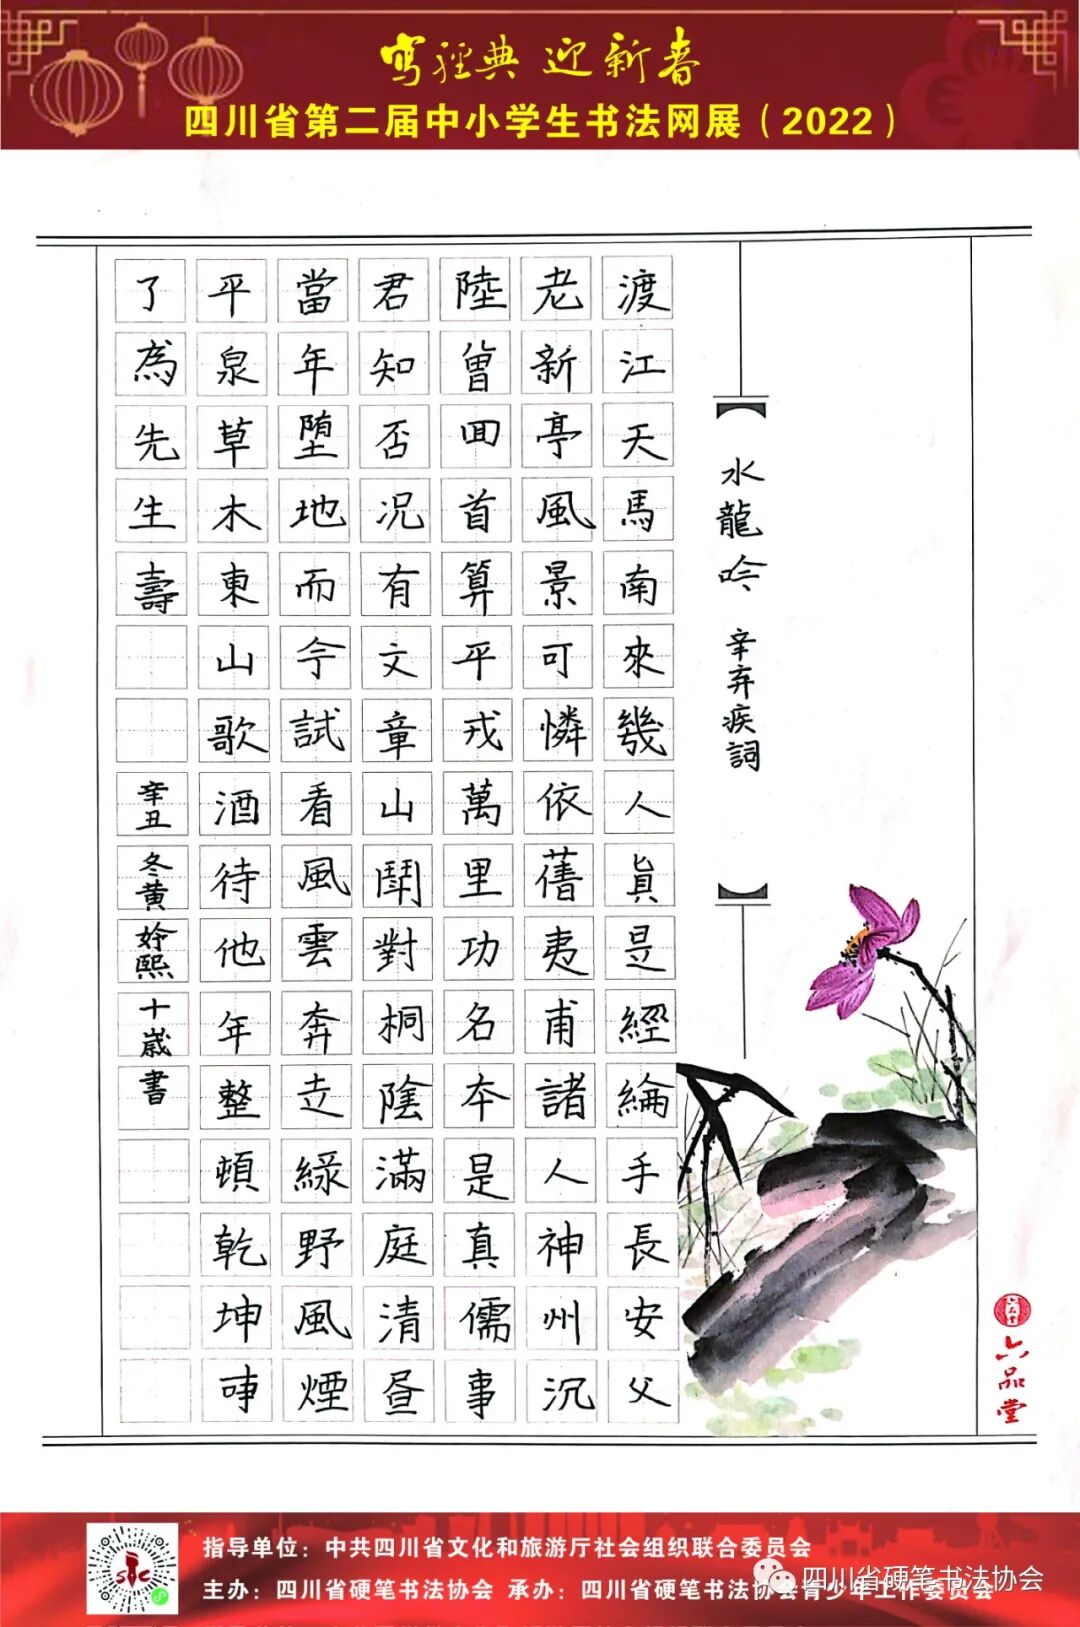 寫經典 迎新春
四川省第二届中小学生书法网展（2022）
水龍吟 辛弃疾詞
渡江天馬南來幾人眞是經綸手長安父
老新亭風景可憐依舊夷甫諸人神州沉
陸曾回首算平戎萬里功名本是真儒事
君知否况有文章山鬪對桐陰滿庭清昼
當年墮地而今試看風雲奔走綠野風煙
平泉草木東山歌酒待他年整頓乾坤事
了為先生壽
辛丑冬黄姈熙十歲書
六品堂
指导单位：中共四川省文化和旅游厅社会组织联合委员会
主办：四川省硬笔书法协会 承办：四川省硬笔书法协会青少年工作委员会
四川省硬笔书法协会